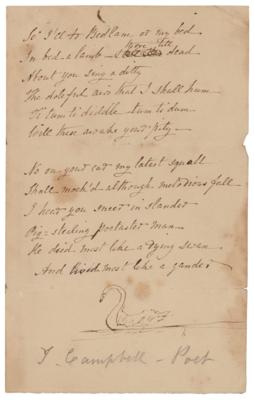 So I'll to Bedlam or my bed
In bed a lamb were still dead
About you sing a ditty
The doleful airs that I shall hum
Ti tum ti diddle tum ti dum
Will these awake your pity –
No on your cat my latest squall
Shall mock'd although melodious fall
I hear you sneer in slander
Pig-stealing poetaster man
He died most like a dying swan
And lived most like a gander
T Campbell – Poet